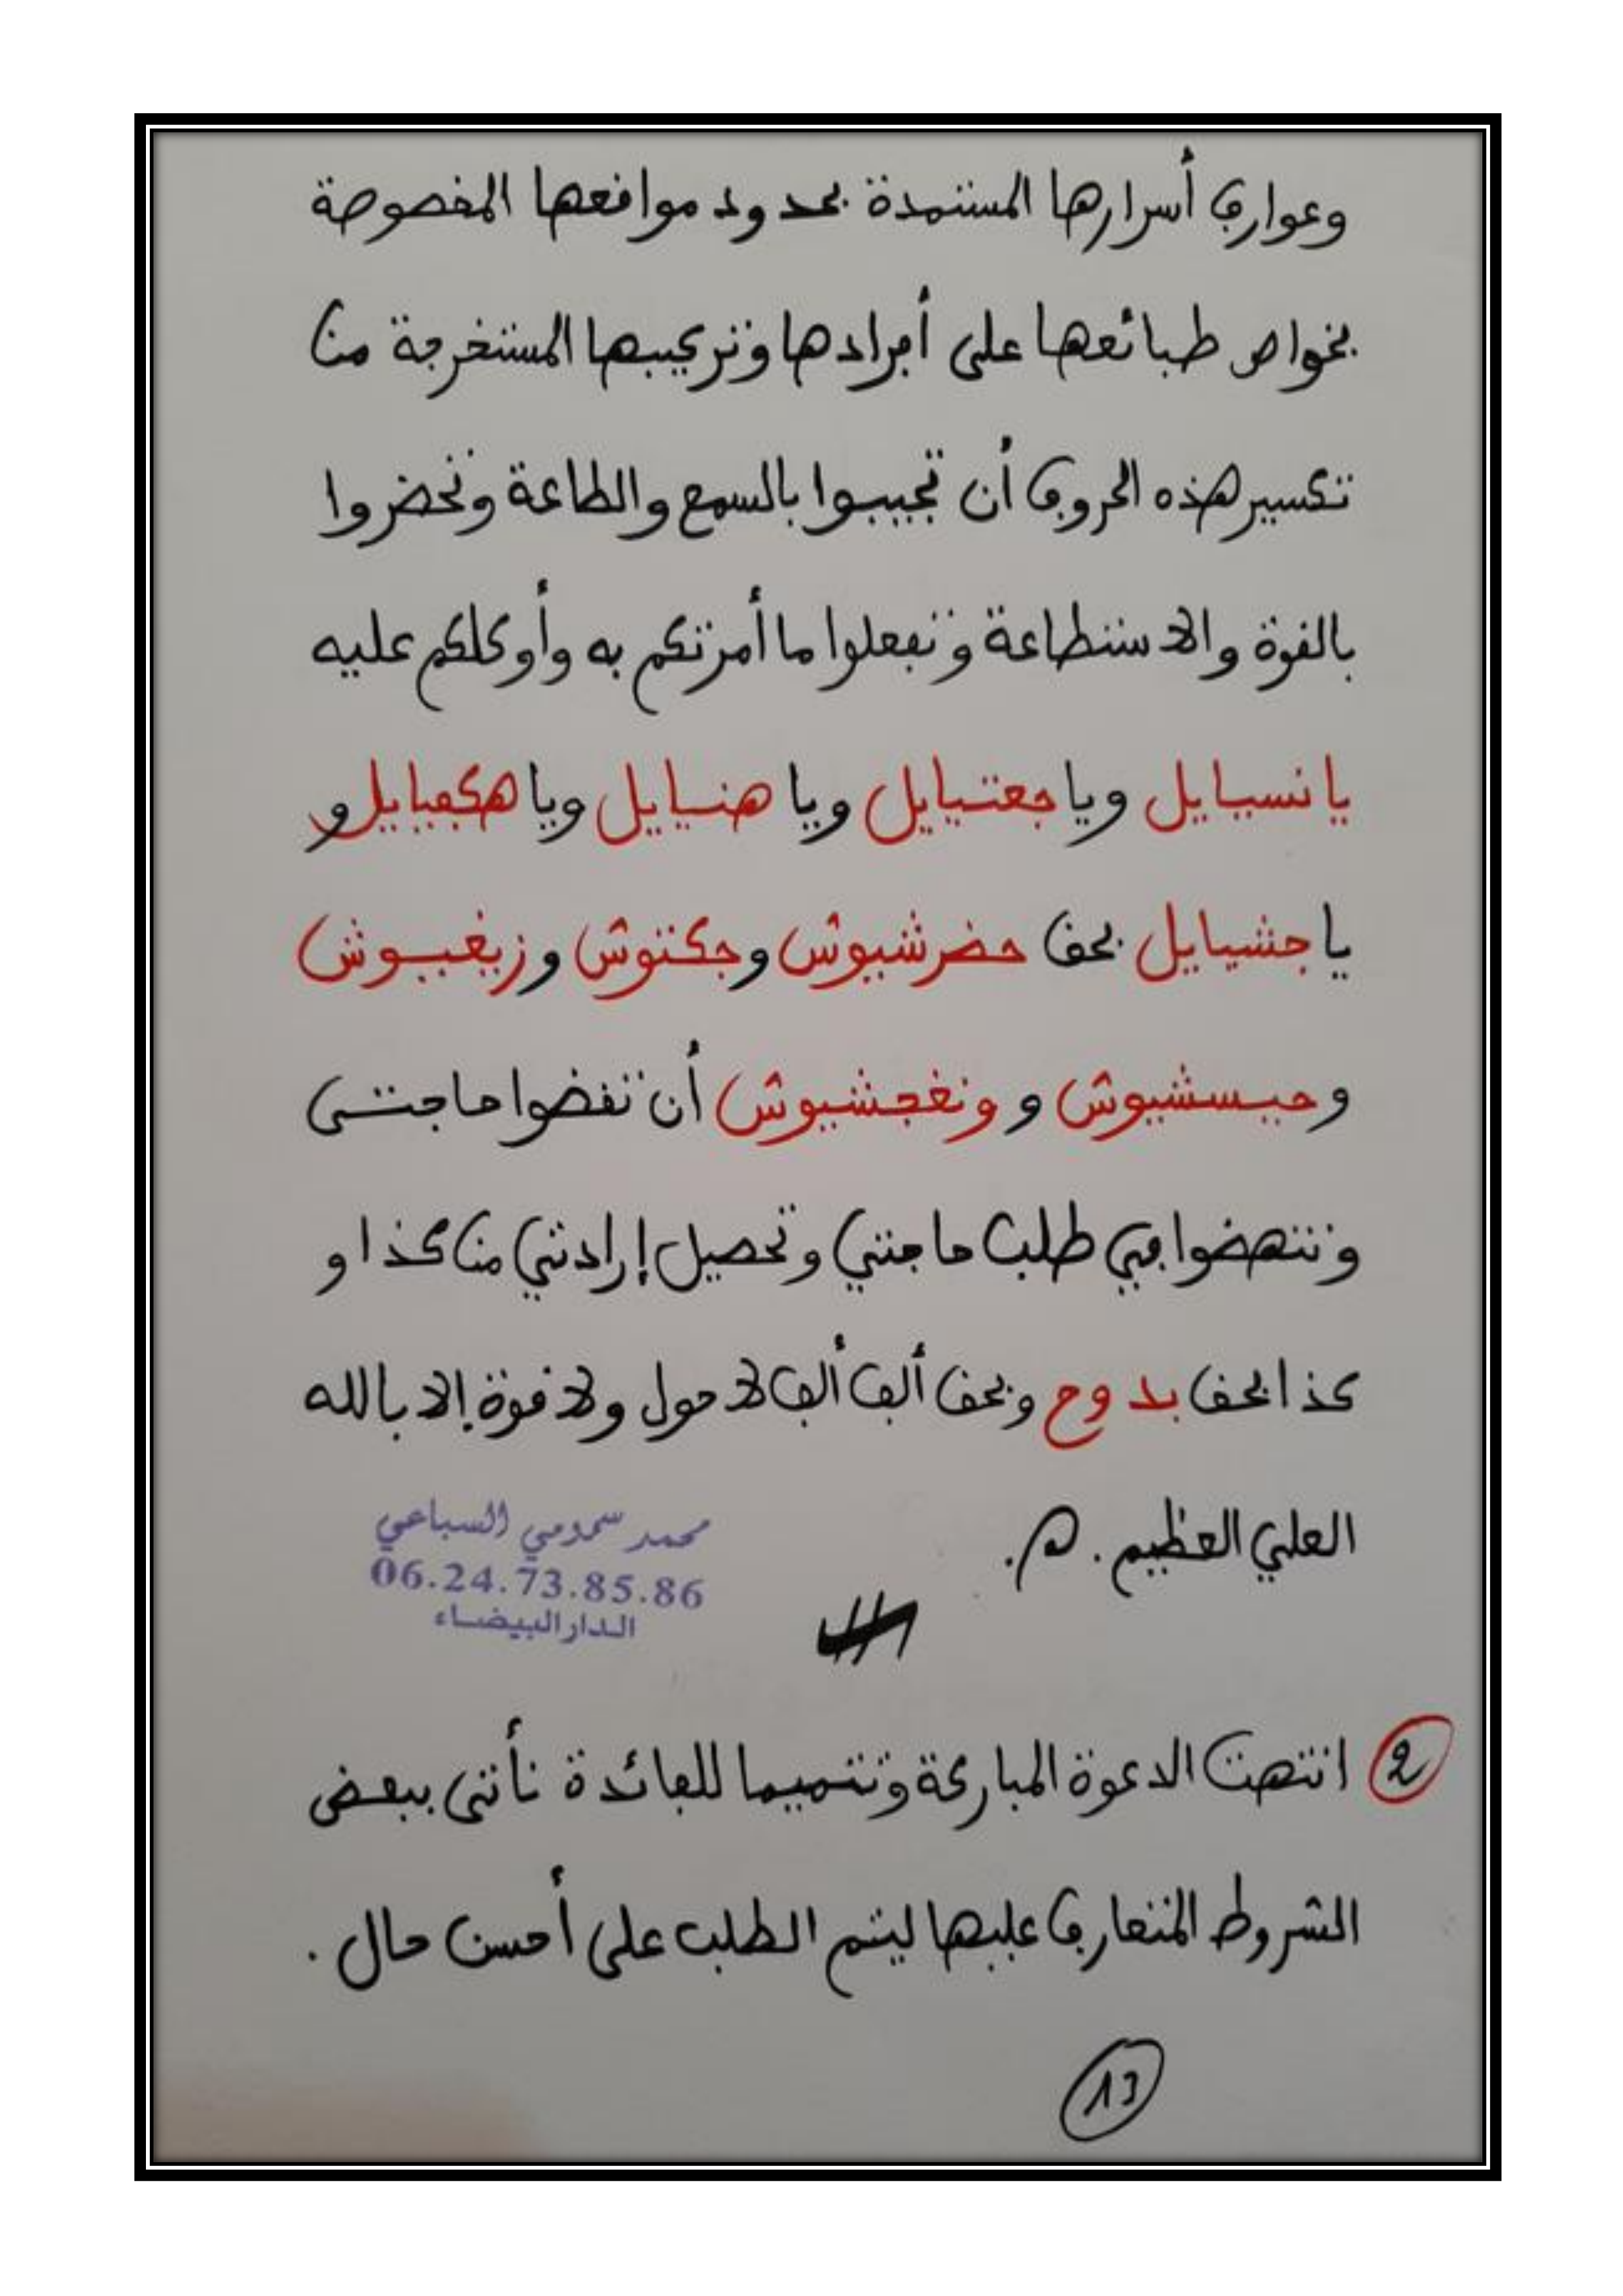 وعوارف أسرارها المستمدة بحدود مواقعها المخصوصة
بخواص طبائعها على أفرادها وتركيبها المستخرجة من
تكسير هذه الحروف أن تجيبوا بالسمع والطاعة وتحضروا
بالقوة والاستطاعة وتفعلوا ما أمرتكم به وأوكلكم عليه
يا نسيايل ويا جعتيايل ويا هنيايل ويا هكفيايل و
يا جشيايل بحق حضرشيوش وجكتوش وزيغيوش
وحيسشيوش و ونغجشيوش أن تقضوا حاجتى
وتنهضوا في طلب حاجتي وتحصيل إرادتي من كذا و
كذا بحق بدوح وبحق ألف ألف لا حول ولا قوة إلا بالله
العلي العظيم . اهـ .
محمد سمومي السباعي
06.24.73.85.86
الدار البيضاء
2 انتهت الدعوة المباركة وتتميما للفائدة نأتى ببعض
الشروط المتعارف عليها ليتم الطلب على أحسن حال .
13